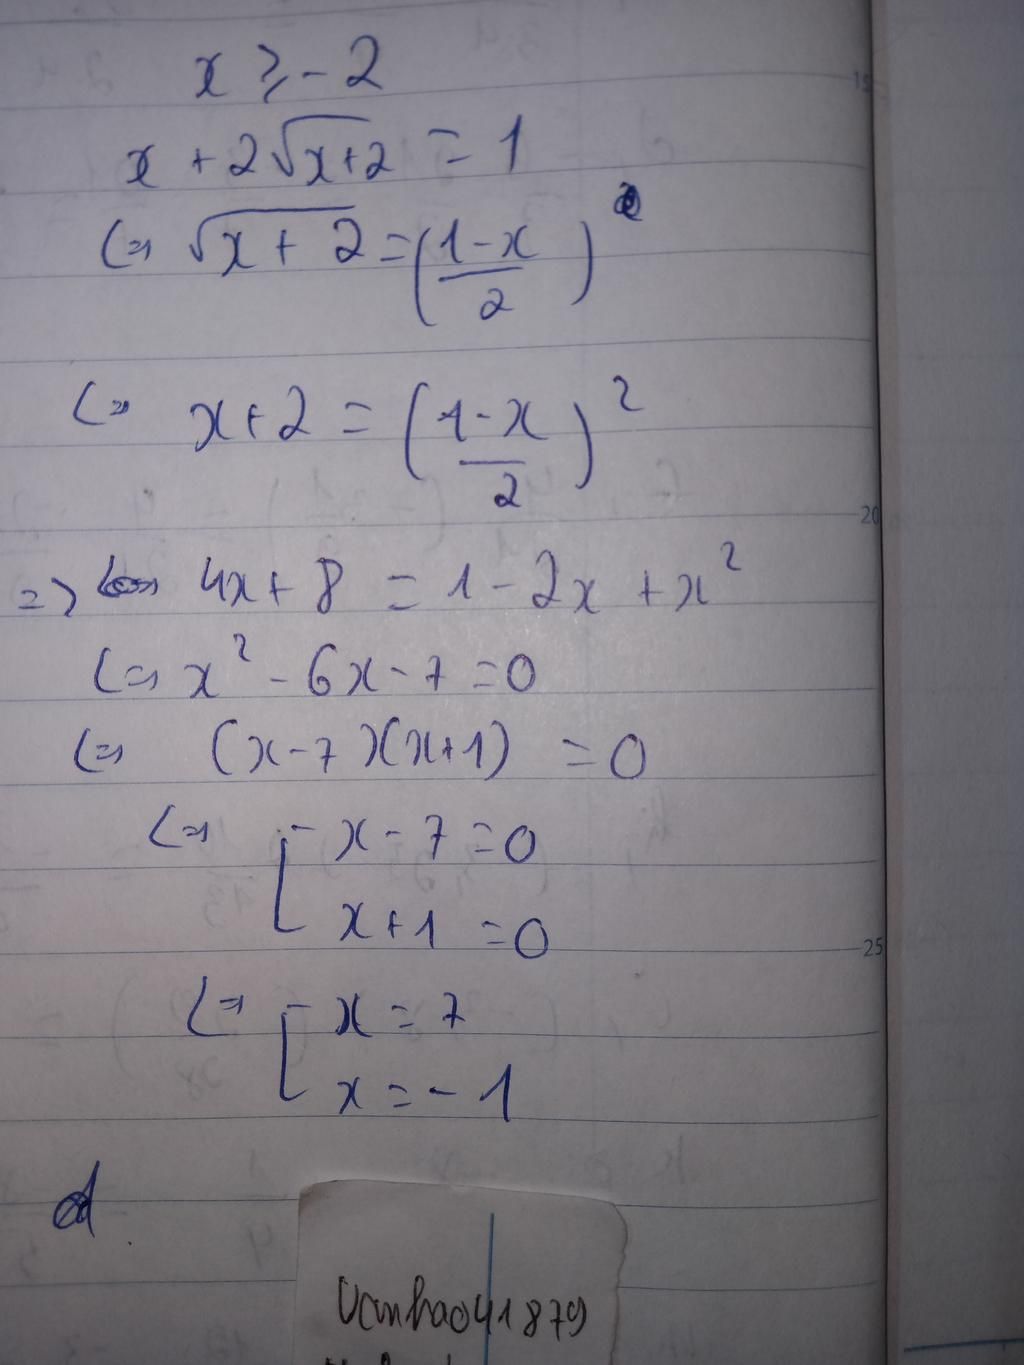 x ⩾ -2
x + 2√x+2 = 1
(=> √x + 2 = (1-x/2)
(=> x+2 = (1-x/2)²
=> 4x+8 = 1 - 2x + x²
(=> x² - 6x - 7 = 0
(=> (x-7)(x+1) = 0
(=> [ x - 7 = 0
x+1 = 0
(=> [ x = 7
x = -1
d
Vanhao41879
15
20
25